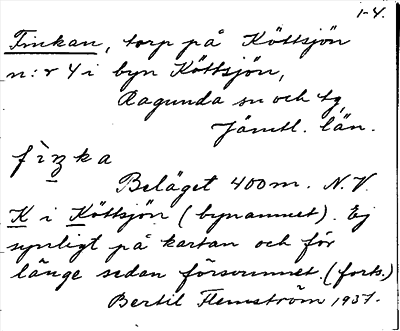 1-4.
Finkan, torp på Köttsjön
n:r 4 i byn Köttsjön,
Ragunda sn och tg,
Jämtl. län.
fìŋka
Beläget 400 m. N.V.
K i Köttsjön (bynamnet). Ej
synligt på kartan och för
länge sedan försvunnet. (forts.)
Bertil Flemström 1937.